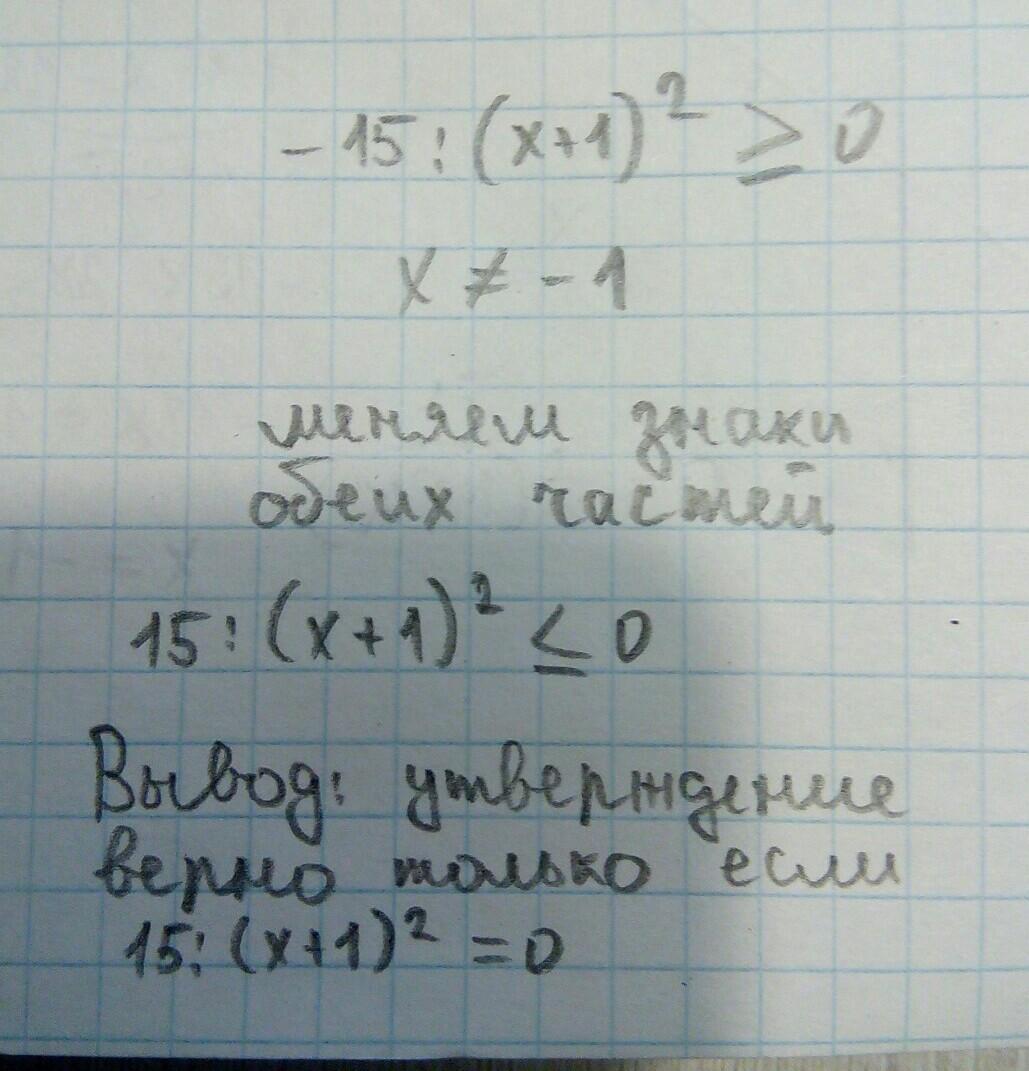 -15:(x+1)² ≥ 0
x ≠ -1
меняем знаки
обеих частей
15:(x+1)² ≤ 0
Вывод: утверждение
верно только если
15:(x+1)² = 0